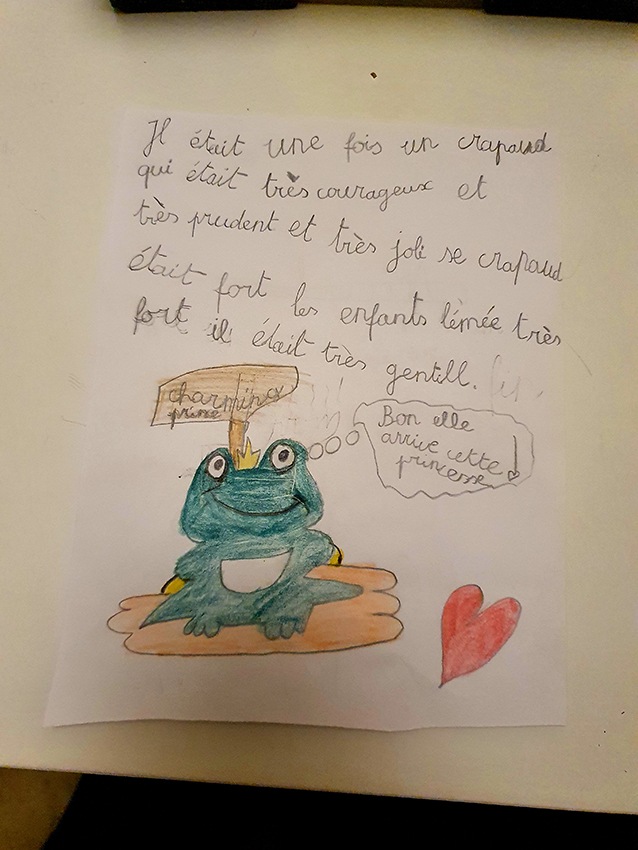 Il était une fois un crapaud
qui était très courageux et
très prudent et très joli se crapaud
était fort les enfants l'émée très
fort il était très gentill.
charming
prince
Bon elle
arrive cette
princesse !